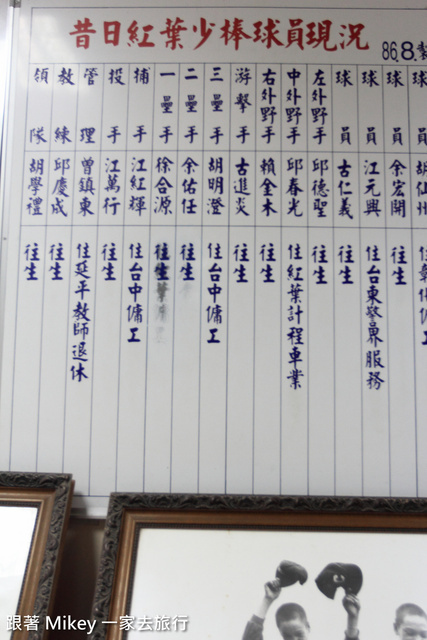 昔日紅葉少棒球員現況
86.8.製
領隊 胡學禮 往生
教練 邱慶成 往生
管理 曾鎮東 住延平教師退休
投手 江萬行 往生
捕手 江紅輝 住台中傭工
一壘手 徐合源 往生
二壘手 余佑任 往生
三壘手 胡明澄 住台中傭工
游擊手 古進炎 往生
右外野手 賴金木 往生
中外野手 邱春光 住紅葉計程車業
左外野手 邱德聖 往生
球員 古仁義 往生
球員 江元興 住台東警界服務
球員 余宏開 往生
球員 胡仙州
跟著 Mikey 一家去旅行